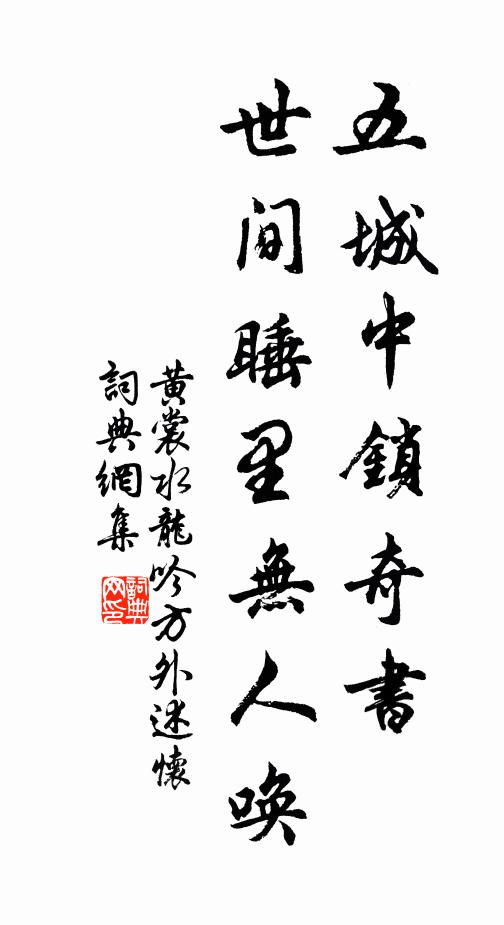 五城中鎖奇書
世间睡里無人唤
黄裳水龍吟方外述懷
詞典網集
詞典網印